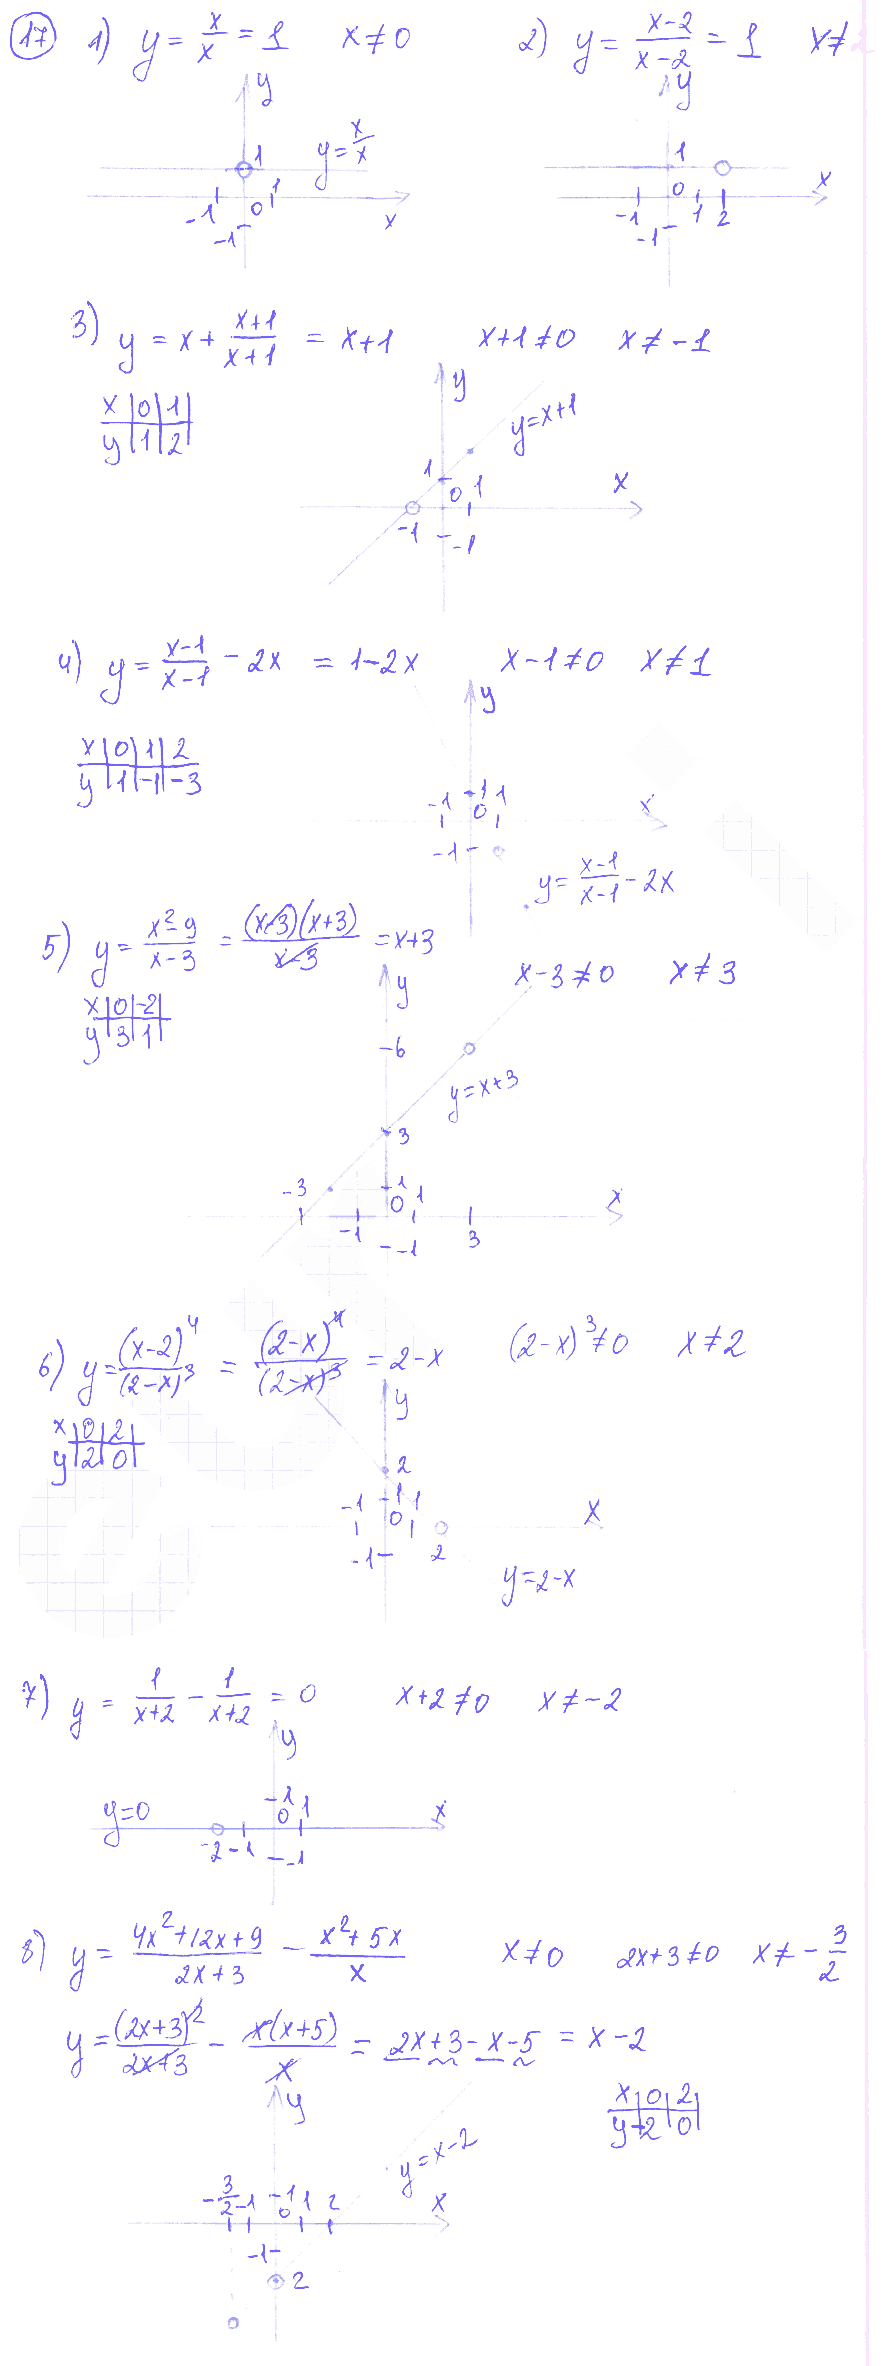 17 1) y = x/x = 1 x ≠ 0 2) y = (x-2)/(x-2) = 1 x ≠
y
1 y = x/x
-1 0 1 x
-1
y
1
-1 0 1 2 x
-1
3) y = x + (x+1)/(x+1) = x+1 x+1 ≠ 0 x ≠ -1
x | 0 | 1
y | 1 | 2
y
y=x+1
1 0 1 x
-1 -1
4) y = (x-1)/(x-1) - 2x = 1-2x x-1 ≠ 0 x ≠ 1
x | 0 | 1 | 2
y | 1 | -1 | -3
y
-1 1 1 x
0
-1
y = (x-1)/(x-1) - 2x
5) y = (x²-9)/(x-3) = (x-3)(x+3)/(x-3) = x+3
x-3 ≠ 0 x ≠ 3
x | 0 | -2
y | 3 | 1
y
6
y=x+3
3
-3 1 0 1 x
-1 3
-1
6) y = (x-2)⁴/(2-x)³ = (2-x)⁴/(2-x)³ = 2-x (2-x)³ ≠ 0 x ≠ 2
x | 0 | 2
y | 2 | 0
y
2
-1 1 1 x
0
-1 2
y=2-x
7) y = 1/(x+2) - 1/(x+2) = 0 x+2 ≠ 0 x ≠ -2
y
y=0 1 0 1 x
-2 -1 -1
8) y = (4x²+12x+9)/(2x+3) - (x²+5x)/x x ≠ 0 2x+3 ≠ 0 x ≠ -3/2
y = (2x+3)²/(2x+3) - x(x+5)/x = 2x+3-x-5 = x-2
x | 0 | 2
y | -2 | 0
y
y=x-2
-3/2 -1 1 0 1 2 x
-1
2